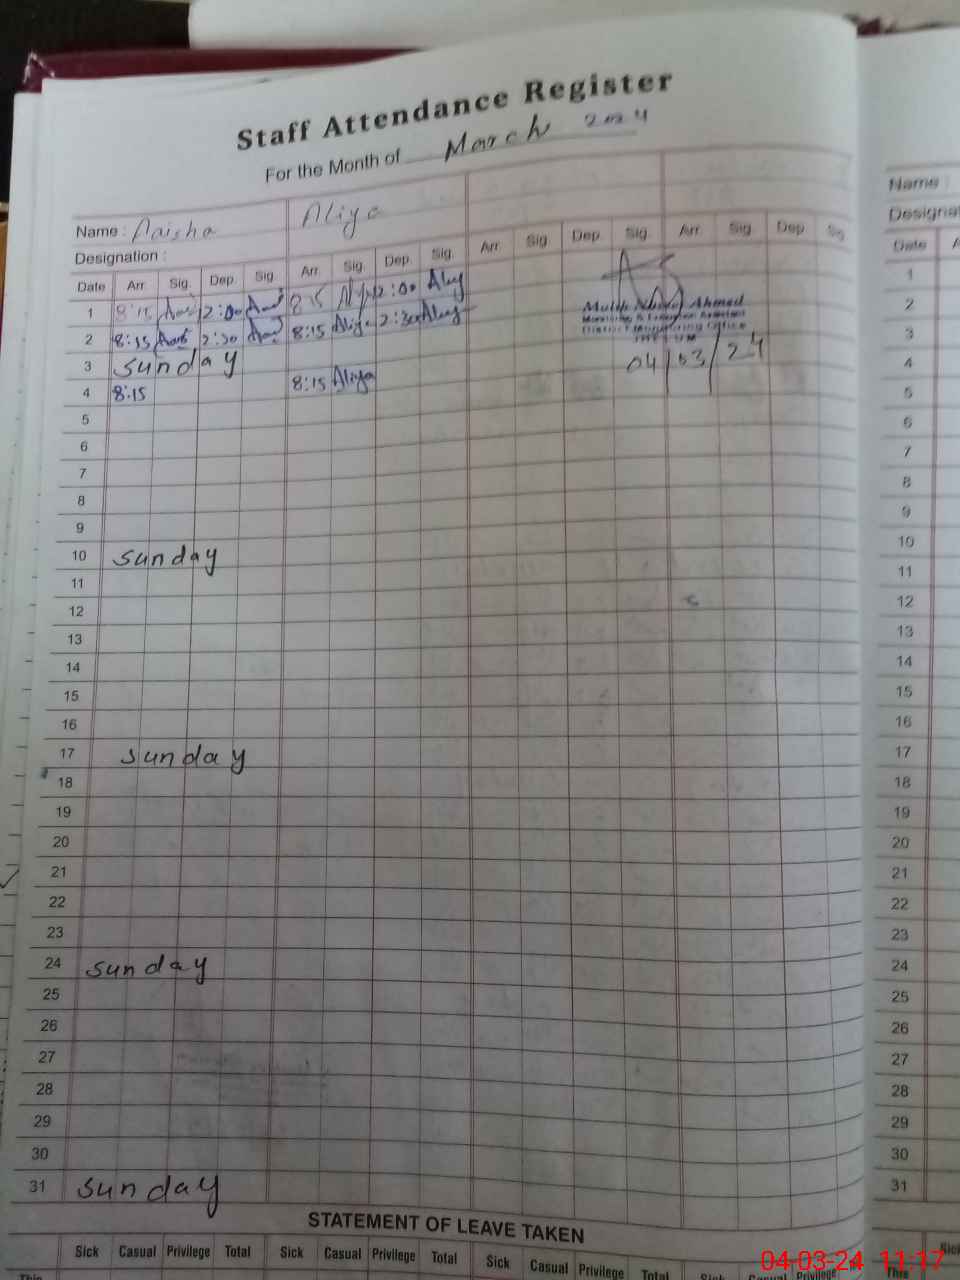 Staff Attendance Register
For the Month of March 2024
Name : Aaisha Aliya
Designation :
Date Arr. Sig. Dep. Sig. Arr. Sig. Dep. Sig. Arr. Sig. Dep. Sig. Arr. Sig. Dep. Sig
1 8:15 12:00 8:15 12:00 Aliy
2 8:15 2:30 8:15 Aliya 2:30 Aliy
3 Sunday
4 8:15 8:15 Aliya
Ahmed
District Monitoring Office
04/03/24
5
6
7
8
9
10 Sunday
11
12
13
14
15
16
17 Sunday
18
19
20
21
22
23
24 Sunday
25
26
27
28
29
30
31 Sunday
STATEMENT OF LEAVE TAKEN
Sick Casual Privilege Total Sick Casual Privilege Total Sick Casual Privilege Total Sick Casual Privilege
This
Name :
Designa
Date A
1
2
3
4
5
6
7
8
9
10
11
12
13
14
15
16
17
18
19
20
21
22
23
24
25
26
27
28
29
30
31
Sick
This
04-03-24 11:17